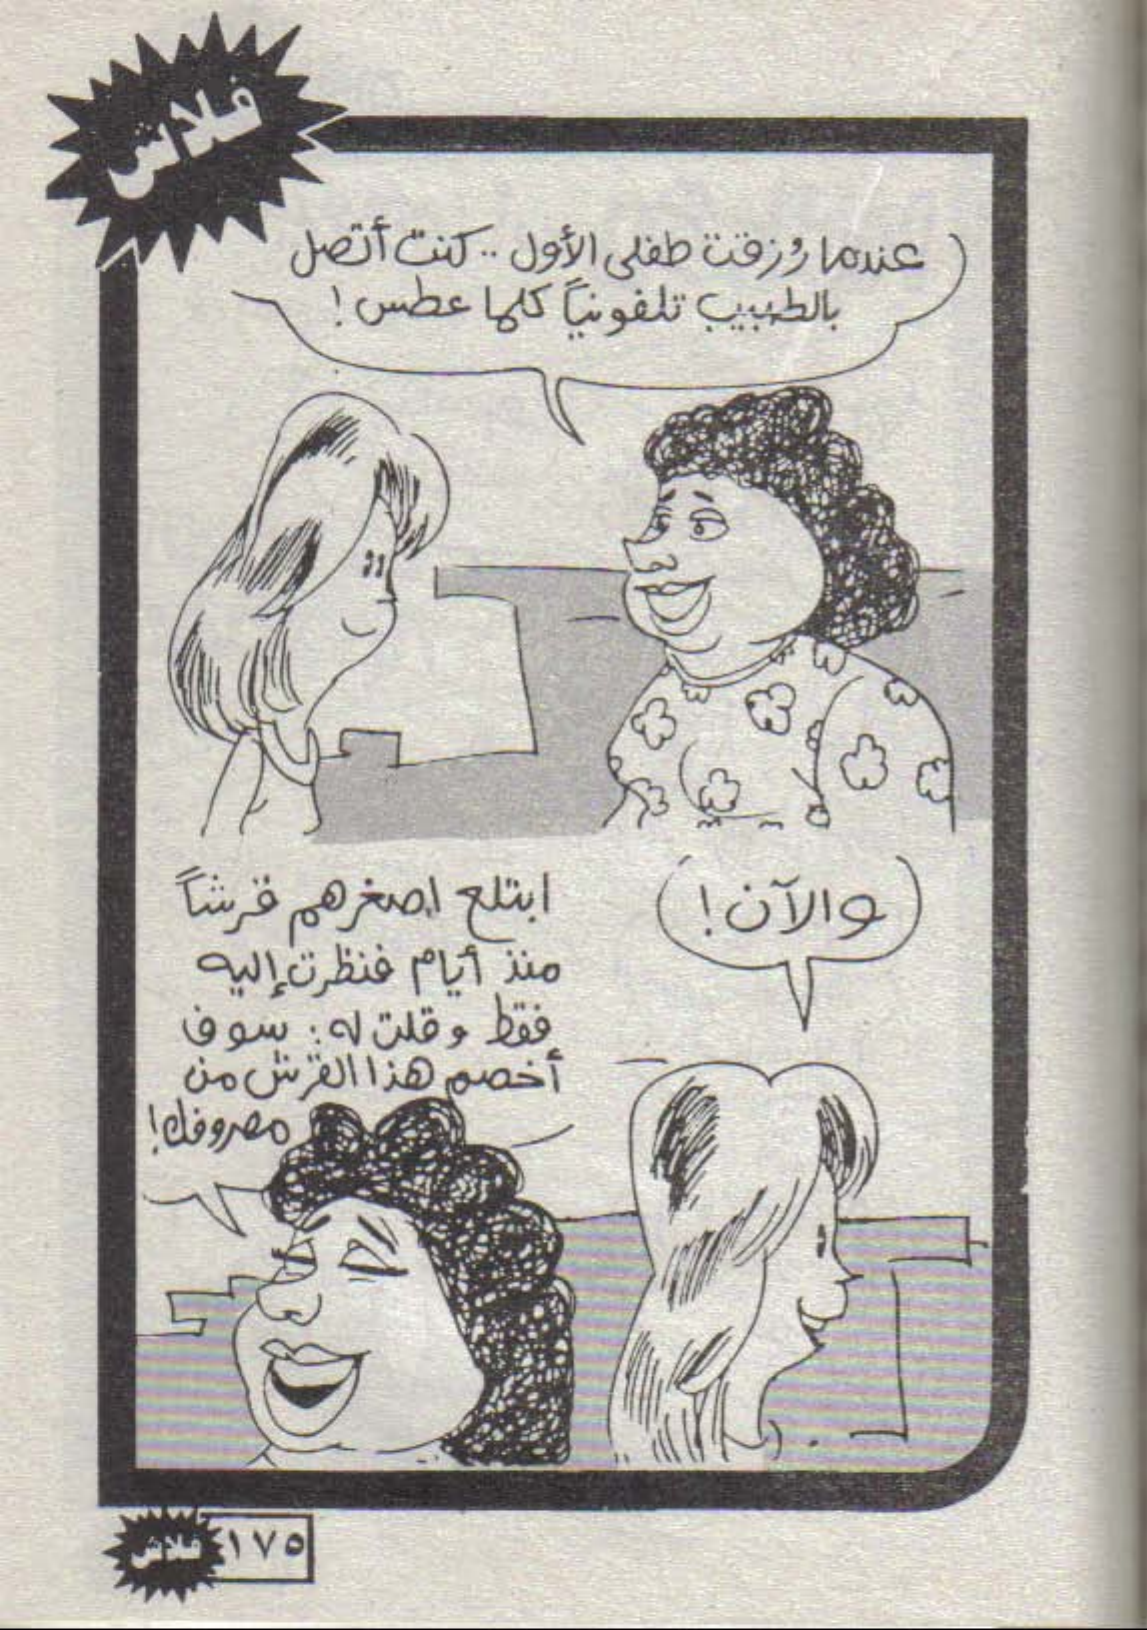 فلاش
عندما رُزقت طفلى الأول .. كنت أتصل
بالطبيب تلفونياً كلما عطس !
والآن !
ابتلع اصغرهم قرشاً
منذ أيام فنظرت إليه
فقط وقلت له : سوف
أخصم هذا القرش من
مصروفك !
١٧٥ فلاش